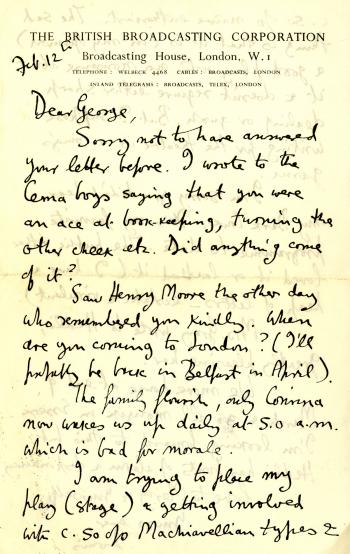 THE BRITISH BROADCASTING CORPORATION
Broadcasting House, London, W.1
TELEPHONE: WELBECK 4468 CABLES: BROADCASTS, LONDON
INLAND TELEGRAMS: BROADCASTS, TELEX, LONDON
Feb. 12th
Dear George,
Sorry not to have answered
your letter before. I wrote to the
Cema boys saying that you were
an ace at book-keeping, turning the
other cheek etc. Did anything come
of it?
Saw Henry Moore the other day
who remembered you kindly. When
are you coming to London? (I'll
probably be back in Belfast in April).
The family flourish, only Corinna
now wakes us up daily at 5.0 a.m.
which is bad for morale.
I am trying to place my
play (stage) & getting involved
with c. 50 o/o Machiavellian types &